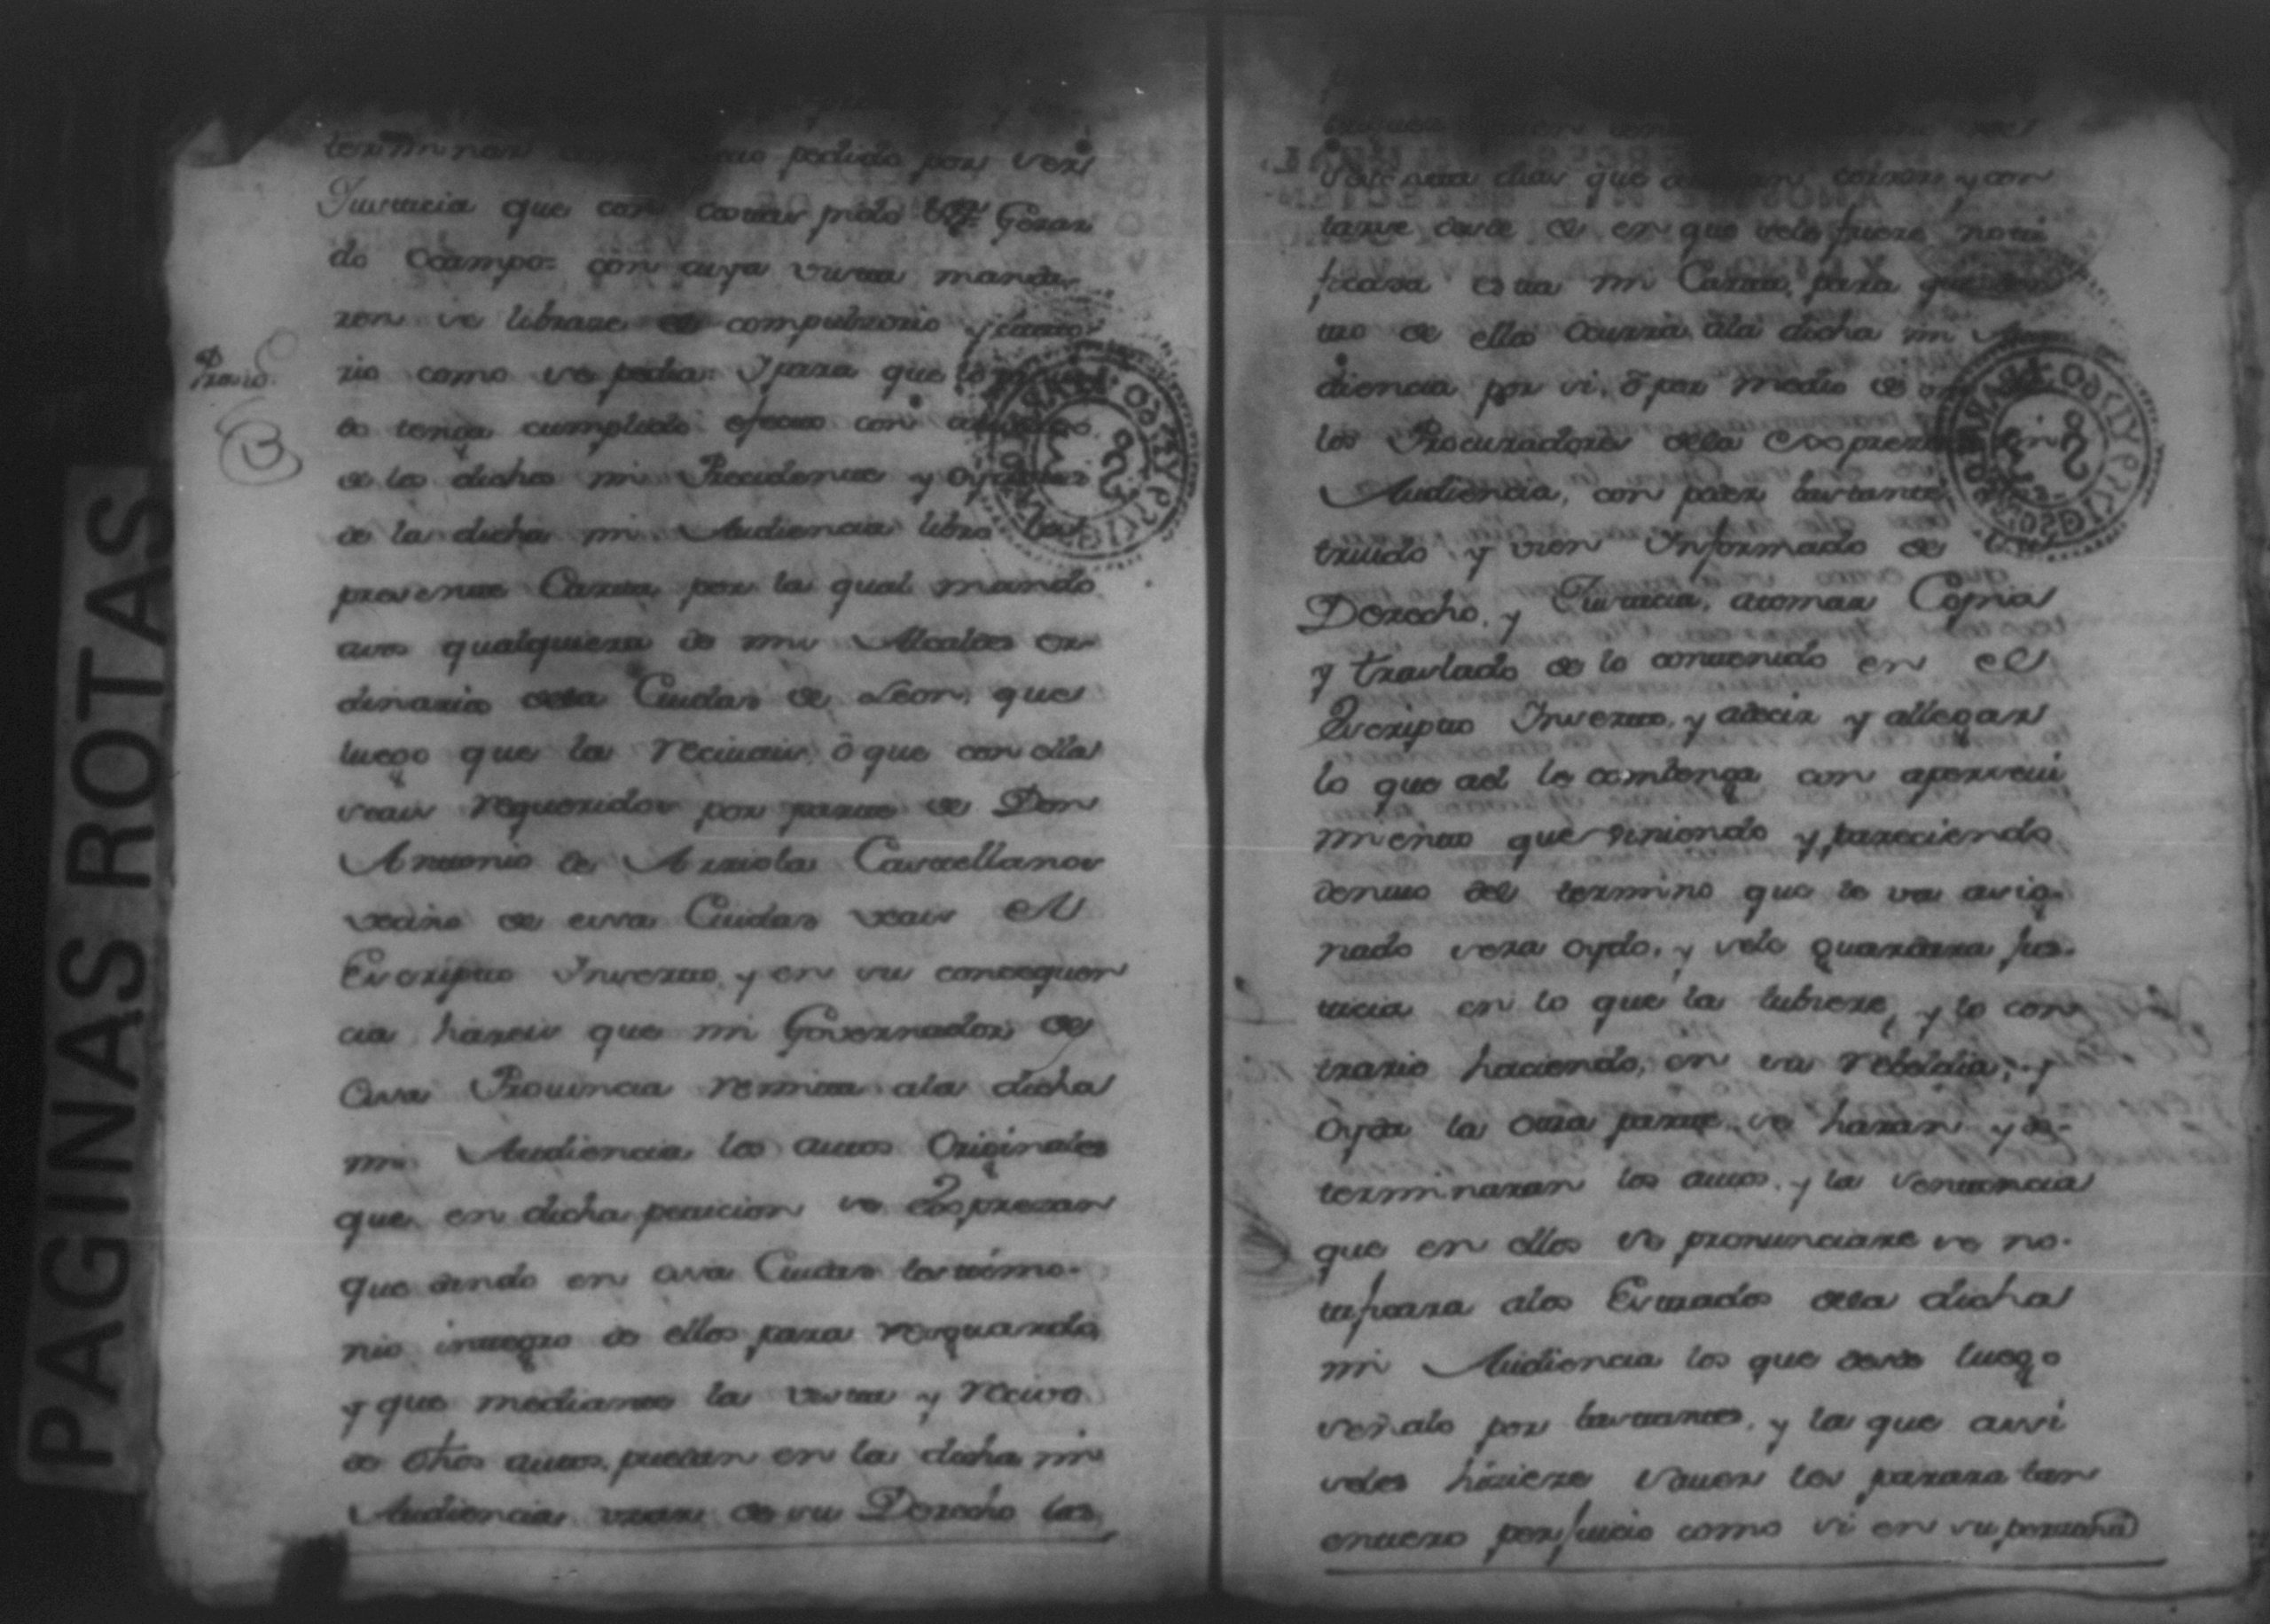 PAGINAS ROTAS
terminar pedido por ser
Justicia que con costas pido Dn. Gerar
do Ocampo= con cuya vista manda
ron se librase el compulsorio y
rio como se pedia: Y para que lo
do tenga cumplido efecto con acuerdo
de los dichos mi Precidente y Oydores
de la dicha mi Audiencia libro la
presente Carta por la qual mando
avos qualquiera de mis Alcaldes or-
dinarios desa Ciudad de Leon, que
luego que la reciuais, ô que con ella
seais requeridos por parte de Don
Antonio de Arriola Castellanos
vecino de esa Ciudad veais el
Escripto Inserto, y en su consequen
cia hareis que mi Governador de
esa Prouincia remita ala dicha
mi Audiencia los autos Originales
que en dicha peticion se Espresan
quedando en esa Ciudad testimo-
nio integro de ellos para resguardo,
y que mediante la vista y recivo
de dhos autos, puedan en la dicha mi
Audiencia vsar de su Derecho las
dias que corran y con
tarse desde el en que sele fuere noti
ficada esta mi Carta, para que den
tro de ellos Ocurra âla dicha mi Au
diencia por si, ô por medio de
los Procuradores dela Espresa
Audiencia, con poder bastante
truido y vien Informado de su
Derecho, y Justicia, atomar Copia
y traslado de lo contenido en el
Escripto Inserto, y adecir y allegar
lo que asi le combenga con apercevi
miento que viniendo y pareciendo
dentro del termino que le va asig-
nado sera oydo, y sele guardara jus-
ticia en lo que la tubiere, y lo con
trario haciendo, en su rebeldia, y
oyda la otra parte, se haran y de-
terminaran los autos, y la Sentencia
que en ellos se pronunciare se no-
tificara alos Estrados dela dicha
mi Audiencia los que desde luego
señalo por bastantes, y la que assi
seles hiciere Saver les parara tan
entero perjuicio como si en su persona